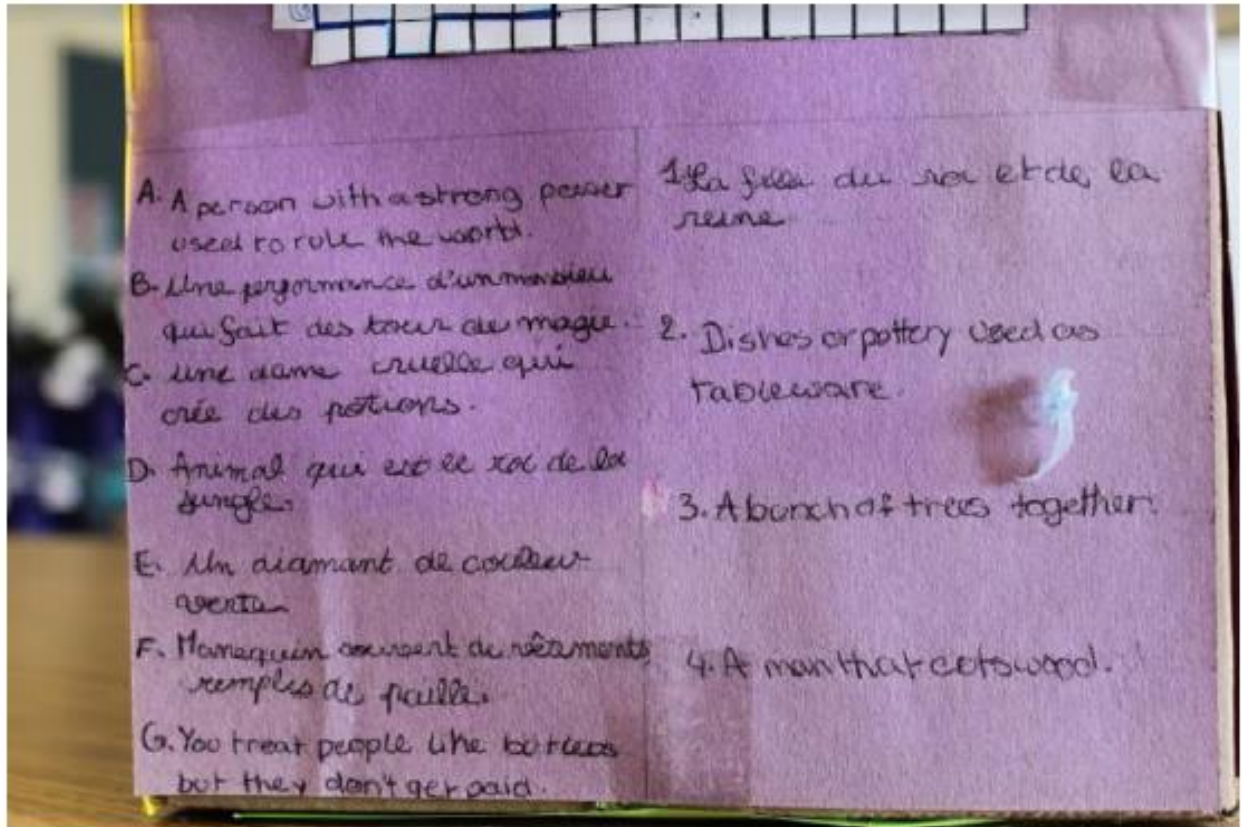 A. A person with a strong power
used to rule the world.
B. Une performance d'un monsieu
qui fait des tour de magie.
C. une dame cruelle qui
crée des potions.
D. Animal qui est le roi de la
jungle.
E. Un diamant de couleur
verte
F. Manequin souvent de vêtements
remplis de paille.
G. You treat people like butlers
but they don't get paid.
1. La fille du roi et de la
reine
2. Dishes or pottery used as
tableware.
3. A bunch of trees together.
4. A man that cuts wood.